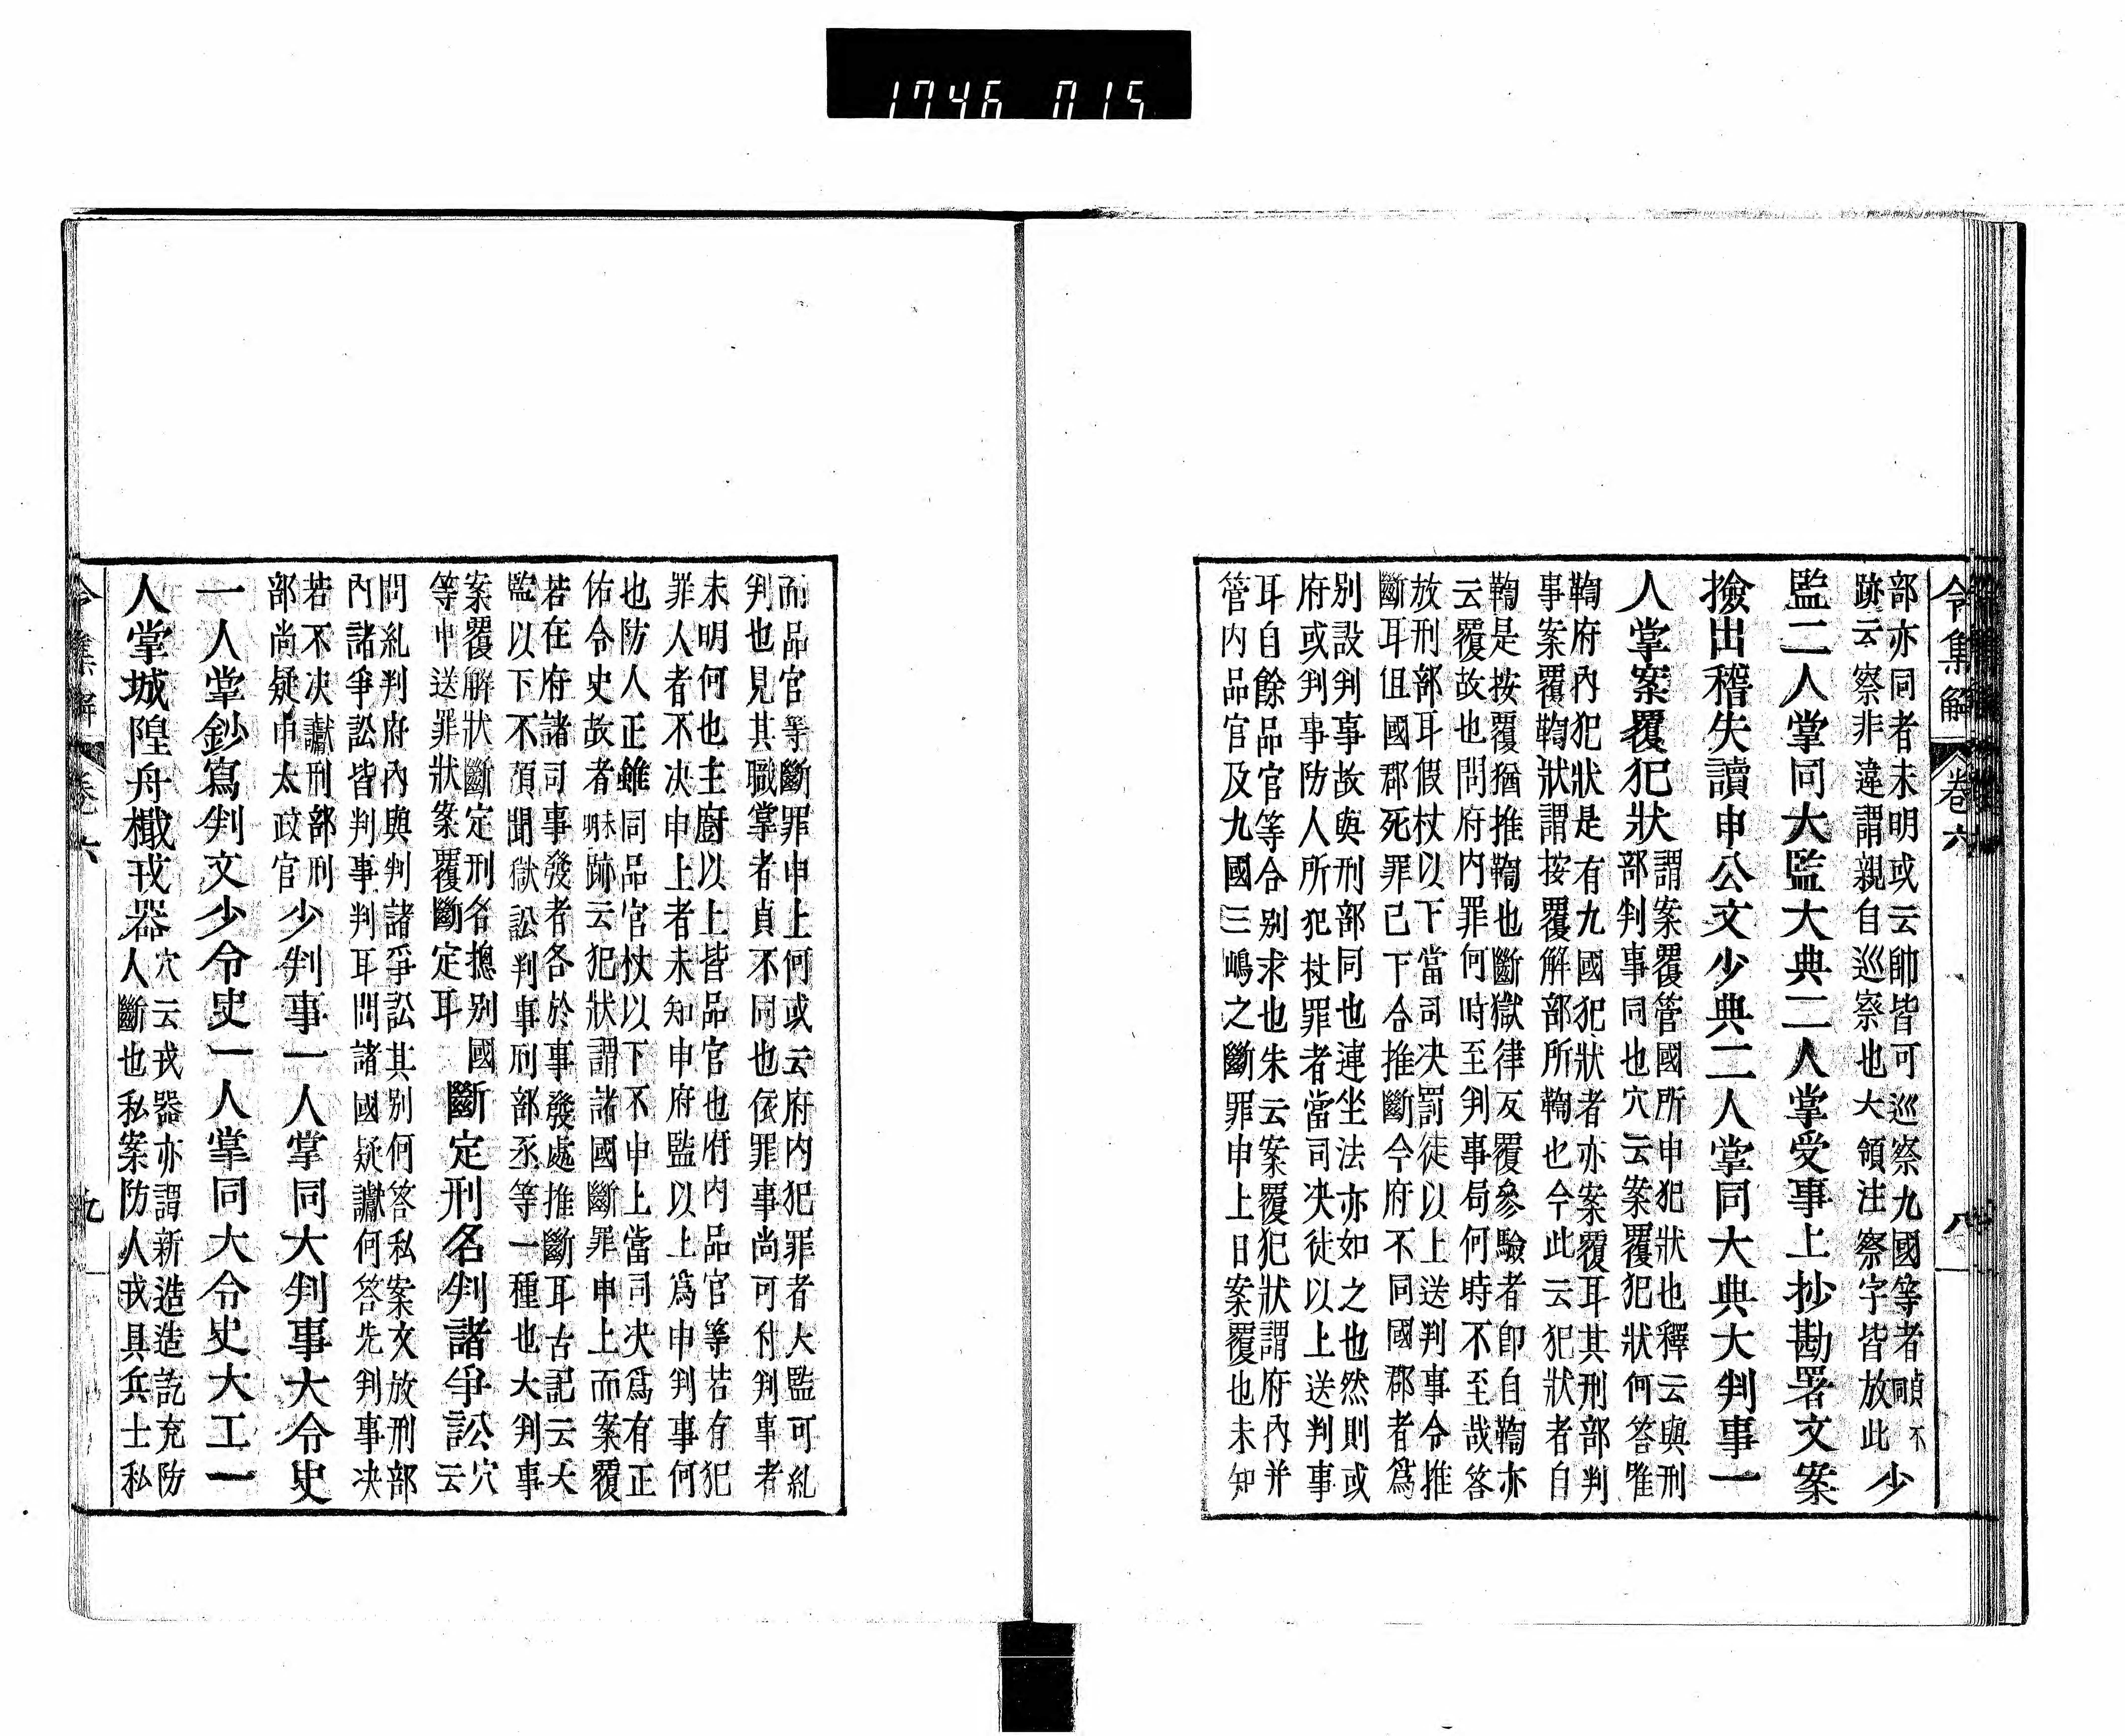 1746 015
令集解 卷六 八
部亦同者未明或云帥皆可巡察九國等者頭不
跡云察非違謂親自巡察也大領注察字皆放此 少
監二人掌同大監大典二人掌受事上抄勘署文案
撿出稽失讀申公文少典二人掌同大典大判事一
人掌案覆犯狀
謂案覆管國所申犯狀也釋云與刑
部判事同也穴云案覆犯狀何答唯
鞫府內犯狀是有九國犯狀者亦案覆耳其刑部判
事案覆鞫狀謂按覆解部所鞫也今此云犯狀者自
鞫是按覆猶推鞫也斷獄律反覆參驗者即自鞫亦
云覆故也問府內罪何時至判事局何時不至哉答
放刑部耳假杖以下當司决罰徒以上送判事令推
斷耳但國郡死罪已下合推斷今府不同國郡者爲
別設判事故與刑部同也連坐法亦如之也然則或
府或判事防人所犯杖罪者當司决徒以上送判事
耳自餘品官等合别求也朱云案覆犯狀謂府內并
管内品官及九國三嶋之斷罪申上日案覆也未知
而品官等斷罪申上何或云府内犯罪者大監可糺
判也見其職掌者貞不同也依罪事尚可付判事者
未明何也主厨以上皆品官也府内品官等若有犯
罪人者不决申上者未知申府監以上爲申判事何
也防人正雖同品官杖以下不申上當司决爲有正
佑令史故者未明跡云犯狀謂諸國斷罪申上而案覆
若在府諸司事發者各於事發處推斷耳古記云大
監以下不預聞獄訟判事刑部丞等一種也大判事
案覆解狀斷定刑名揔别國
等申送罪狀案覆斷定耳
斷定刑名判諸爭訟
穴
云
問糺判府內與判諸爭訟其别何答私案文放刑部
內諸爭訟皆判事判耳問諸國疑讞何答先判事决
若不决讞刑部刑
部尚疑申太政官
少判事一人掌同大判事大令史
一人掌鈔寫判文少令史一人掌同大令史大工一
人掌城隍舟檝戎器
穴云戎器亦謂新造造訖充防
人斷也私案防人戎具兵士私
令集解 卷六 九